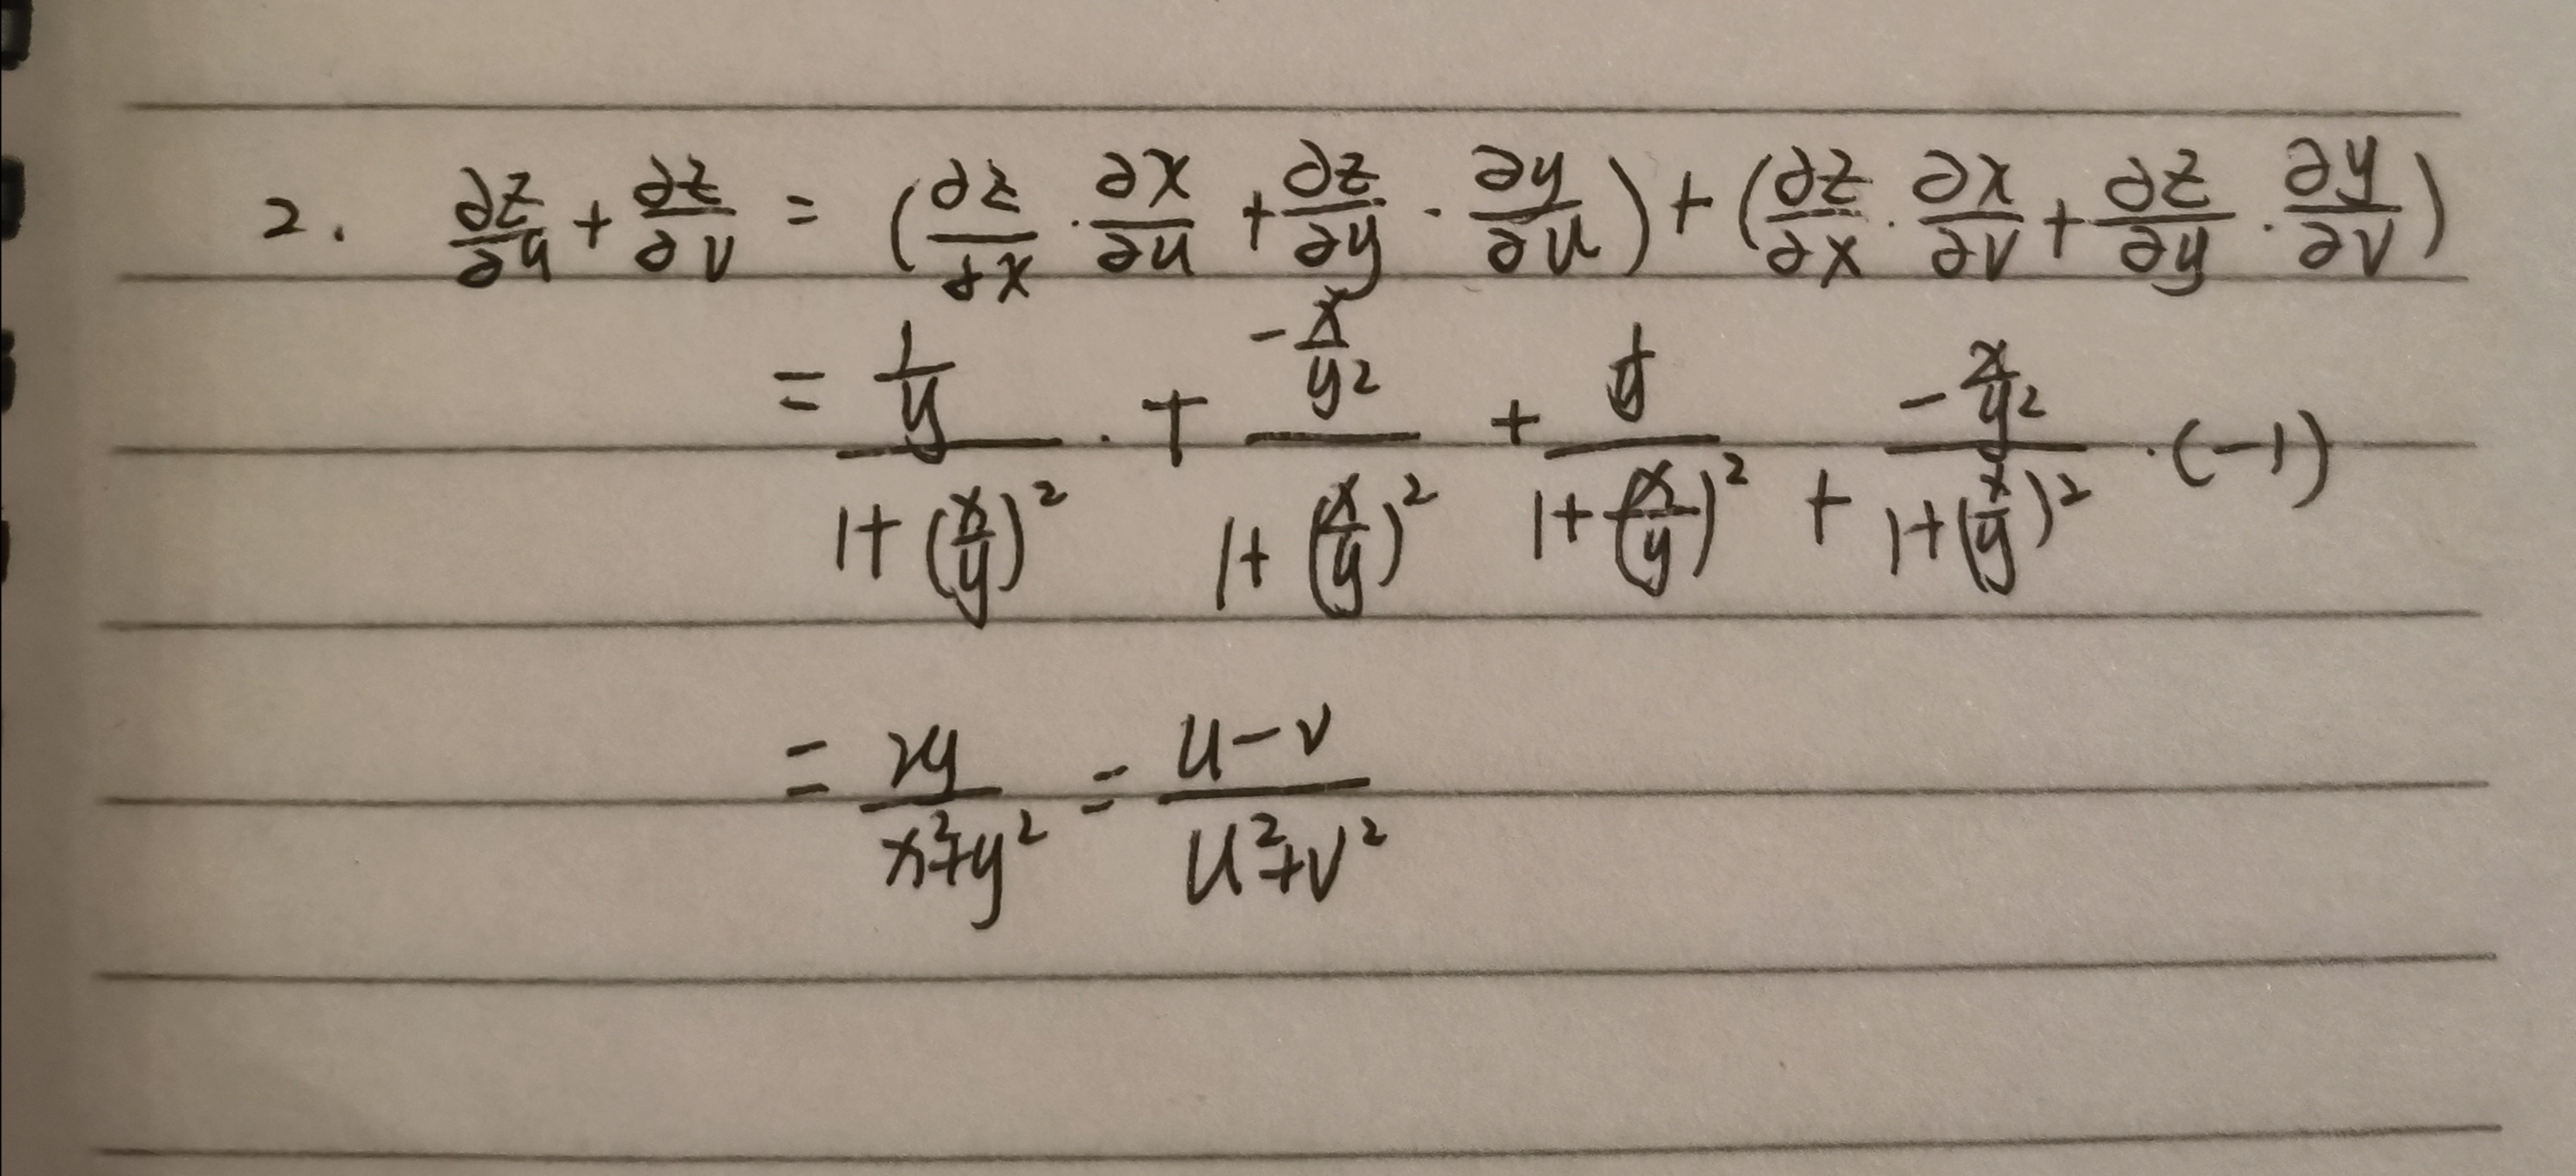 2. ∂z/∂u + ∂z/∂v = (∂z/∂x · ∂x/∂u + ∂z/∂y · ∂y/∂u) + (∂z/∂x · ∂x/∂v + ∂z/∂y · ∂y/∂v)
= (1/y)/(1+(x/y)²) · + (-x/y²)/(1+(x/y)²) + (1/y)/(1+(x/y)²) + (-x/y²)/(1+(x/y)²) · (-1)
= 2y/(x²+y²) = (u-v)/(u²+v²)